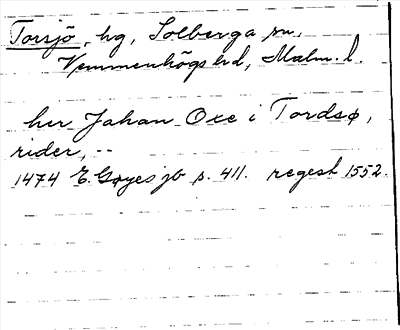 Torsjö, hg, Solberga sn,
Vemmenhögs hd, Malm. l.
her Jahan Oxe i Tordsø,
rider, --
1474 E. Gøyes jb p. 411. regest 1552.